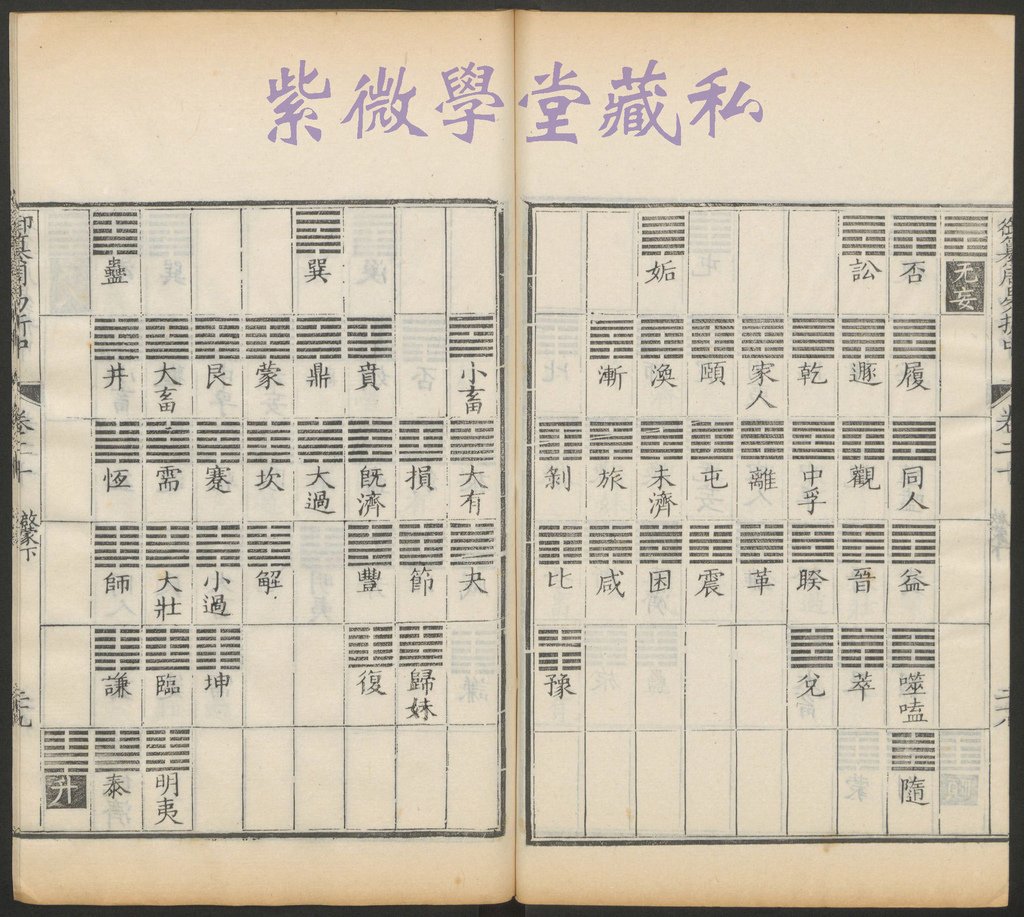 紫微學堂藏私
御纂周易折中 卷二十
无妄
否 履 同人 益 噬嗑 隨
訟 遯 觀 晉 萃
乾 中孚 睽 兌
家人 離 革
頤 屯 震
姤 渙 未濟 困
漸 旅 咸
剝 比 豫
小畜 大有 夬
損 節 歸妹
賁 旣濟 豐 復
巽 鼎 大過
蒙 坎 解
艮 蹇 小過 坤
大畜 需 大壯 臨 明夷
蠱 井 恆 師 謙 泰
升
御纂周易折中 卷二十 啟蒙下